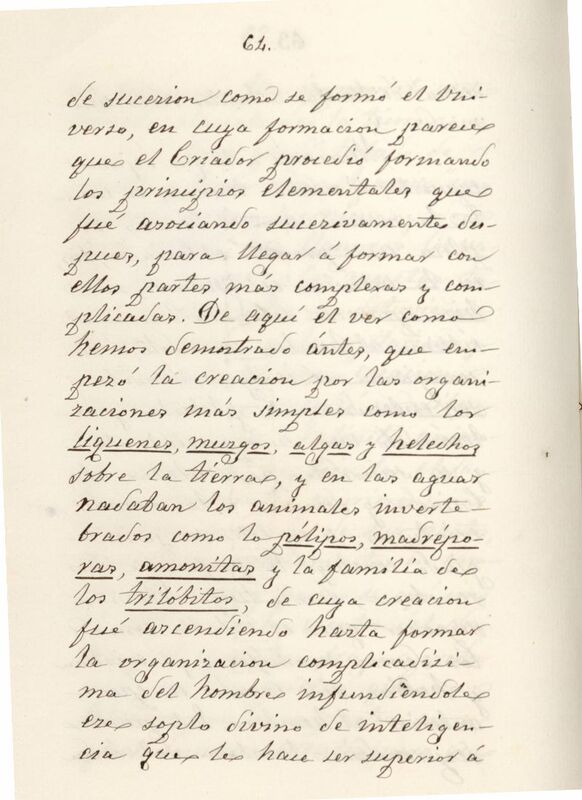 64.
de sucezion como se formó el Uni-
verso, en cuya formacion parece
que el Criador procedió formando
los principios elementales que
fué asociando sucezivamente des-
pues, para llegar á formar con
ellos partes más compleras y com-
plicadas. De aquí el ver como
hemos demostrado antes, que em-
pezó la creacion por las organi-
zaciones más simples como los
liquenes, muzgos, algas y helechos
sobre la tierra, y en las aguas
nadaban los animales inverte-
brados como lo pólipos, madrépo-
ras, amonitas y la familia de
los trilóbitos, de cuya creacion
fué ascendiendo hasta formar
la organizacion complicadizi-
ma del hombre infundiéndole
eze soplo divino de inteligen-
cia que le hace ser superior á